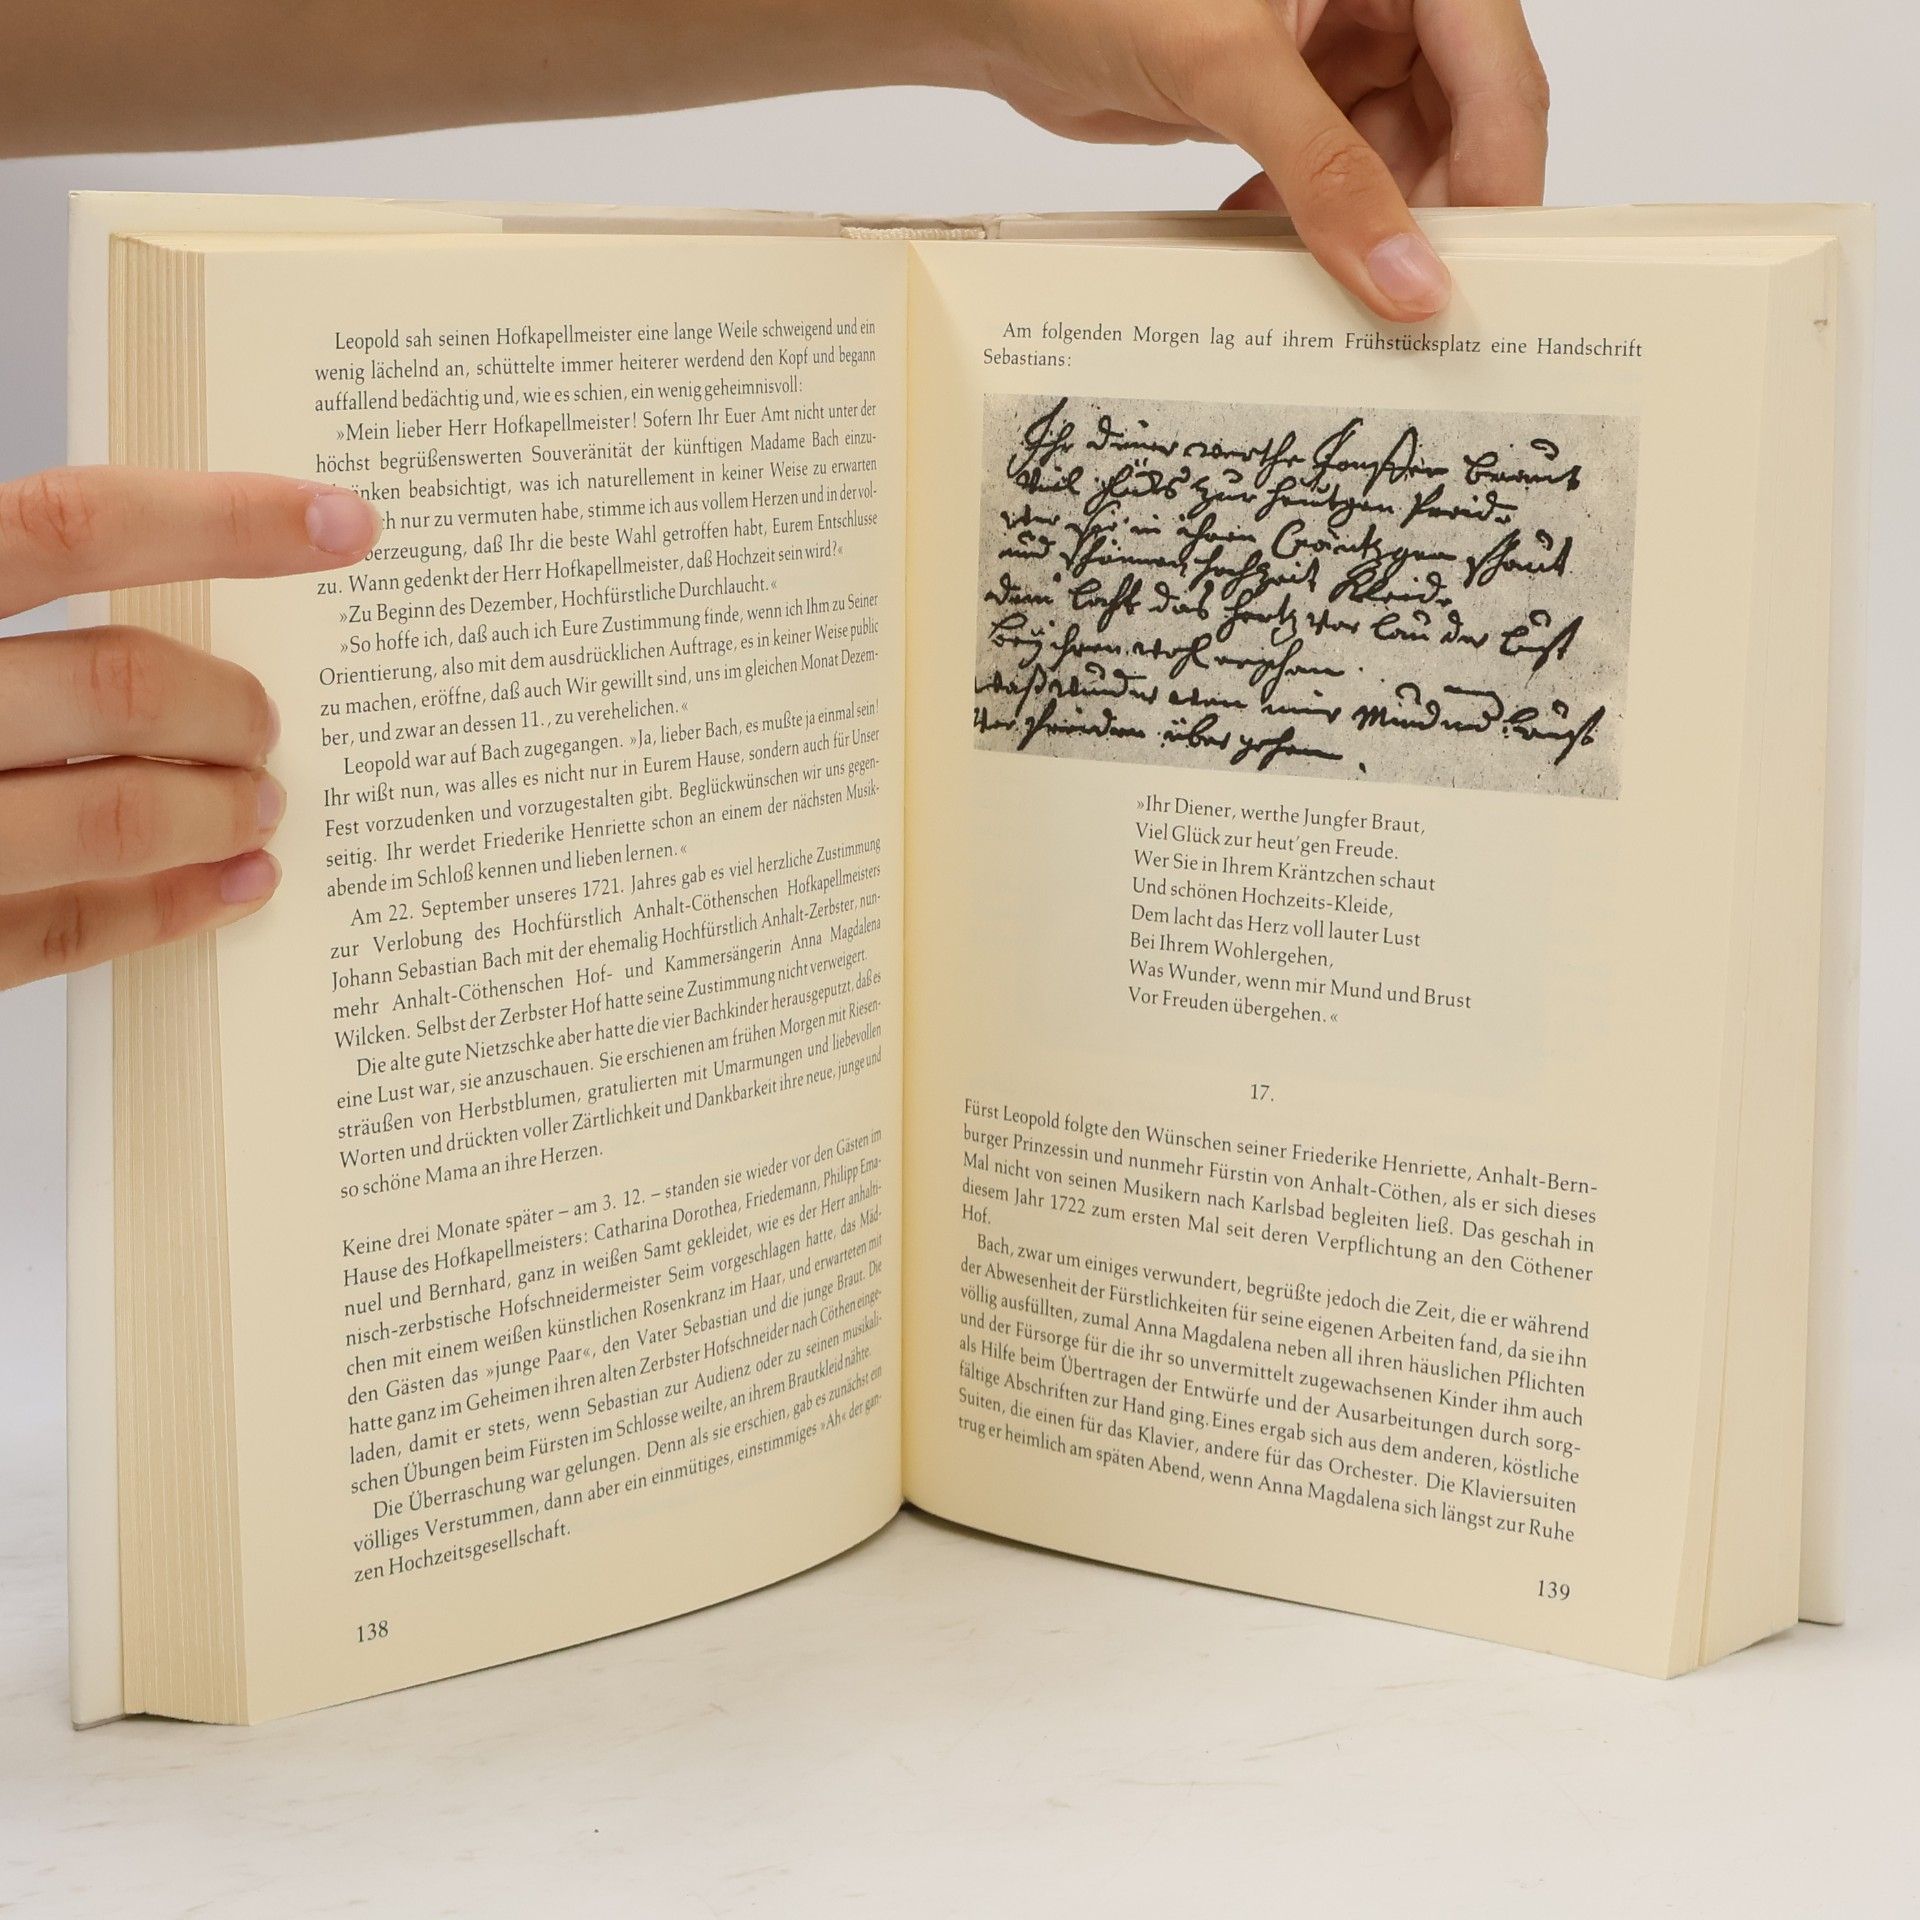 Leopold sah seinen Hofkapellmeister eine lange Weile schweigend und ein
wenig lächelnd an, schüttelte immer heiterer werdend den Kopf und begann
auffallend bedächtig und, wie es schien, ein wenig geheimnisvoll:
»Mein lieber Herr Hofkapellmeister! Sofern Ihr Euer Amt nicht unter der
höchst begrüßenswerten Souveränität der künftigen Madame Bach einzu-
beabsichtigt, was ich naturellement in keiner Weise zu erwarten
nur zu vermuten habe, stimme ich aus vollem Herzen und in der vol-
berzeugung, daß Ihr die beste Wahl getroffen habt, Eurem Entschlusse
zu. Wann gedenkt der Herr Hofkapellmeister, daß Hochzeit sein wird?«
»Zu Beginn des Dezember, Hochfürstliche Durchlaucht.«
»So hoffe ich, daß auch ich Eure Zustimmung finde, wenn ich Ihm zu Seiner
Orientierung, also mit dem ausdrücklichen Auftrage, es in keiner Weise public
zu machen, eröffne, daß auch Wir gewillt sind, uns im gleichen Monat Dezem-
ber, und zwar an dessen 11., zu verehelichen.«
Leopold war auf Bach zugegangen. »Ja, lieber Bach, es mußte ja einmal sein!
Ihr wißt nun, was alles es nicht nur in Eurem Hause, sondern auch für Unser
Fest vorzudenken und vorzugestalten gibt. Beglückwünschen wir uns gegen-
seitig. Ihr werdet Friederike Henriette schon an einem der nächsten Musik-
abende im Schloß kennen und lieben lernen.«
Am 22. September unseres 1721. Jahres gab es viel herzliche Zustimmung
zur Verlobung des Hochfürstlich Anhalt-Cöthenschen Hofkapellmeisters
Johann Sebastian Bach mit der ehemalig Hochfürstlich Anhalt-Zerbster, nun-
mehr Anhalt-Cöthenschen Hof- und Kammersängerin Anna Magdalena
Wilcken. Selbst der Zerbster Hof hatte seine Zustimmung nicht verweigert.
Die alte gute Nietzschke aber hatte die vier Bachkinder herausgeputzt, daß es
eine Lust war, sie anzuschauen. Sie erschienen am frühen Morgen mit Riesen-
sträußen von Herbstblumen, gratulierten mit Umarmungen und liebevollen
Worten und drückten voller Zärtlichkeit und Dankbarkeit ihre neue, junge und
so schöne Mama an ihre Herzen.
Keine drei Monate später – am 3. 12. – standen sie wieder vor den Gästen im
Hause des Hofkapellmeisters: Catharina Dorothea, Friedemann, Philipp Ema-
nuel und Bernhard, ganz in weißen Samt gekleidet, wie es der Herr anhalti-
nisch-zerbstische Hofschneidermeister Seim vorgeschlagen hatte, das Mäd-
chen mit einem weißen künstlichen Rosenkranz im Haar, und erwarteten mit
den Gästen das »junge Paar«, den Vater Sebastian und die junge Braut. Die
hatte ganz im Geheimen ihren alten Zerbster Hofschneider nach Cöthen einge-
laden, damit er stets, wenn Sebastian zur Audienz oder zu seinen musikali-
schen Übungen beim Fürsten im Schlosse weilte, an ihrem Brautkleid nähte.
Die Überraschung war gelungen. Denn als sie erschien, gab es zunächst ein
völliges Verstummen, dann aber ein einmütiges, einstimmiges »Ah« der gan-
zen Hochzeitsgesellschaft.
138
Am folgenden Morgen lag auf ihrem Frühstücksplatz eine Handschrift
Sebastians:
Ihr Diener werthe Jungfer Braut
Viel Glücks zur heutgen Freude
wer sie in ihren Cräntzgen schaut
und schönen hochzeit Kleide
dem lacht das hertz vor lauter Lust
bey ihren wohl ergehen
waß wunder wenn mir Mund und Brust
vor freuden über gehen.
»Ihr Diener, werthe Jungfer Braut,
Viel Glück zur heut'gen Freude.
Wer Sie in Ihrem Kräntzchen schaut
Und schönen Hochzeits-Kleide,
Dem lacht das Herz voll lauter Lust
Bei Ihrem Wohlergehen,
Was Wunder, wenn mir Mund und Brust
Vor Freuden übergehen.«
17.
Fürst Leopold folgte den Wünschen seiner Friederike Henriette, Anhalt-Bern-
burger Prinzessin und nunmehr Fürstin von Anhalt-Cöthen, als er sich dieses
Mal nicht von seinen Musikern nach Karlsbad begleiten ließ. Das geschah in
diesem Jahr 1722 zum ersten Mal seit deren Verpflichtung an den Cöthener
Hof.
Bach, zwar um einiges verwundert, begrüßte jedoch die Zeit, die er während
der Abwesenheit der Fürstlichkeiten für seine eigenen Arbeiten fand, da sie ihn
völlig ausfüllten, zumal Anna Magdalena neben all ihren häuslichen Pflichten
und der Fürsorge für die ihr so unvermittelt zugewachsenen Kinder ihm auch
als Hilfe beim Übertragen der Entwürfe und der Ausarbeitungen durch sorg-
fältige Abschriften zur Hand ging. Eines ergab sich aus dem anderen, köstliche
Suiten, die einen für das Klavier, andere für das Orchester. Die Klaviersuiten
trug er heimlich am späten Abend, wenn Anna Magdalena sich längst zur Ruhe
139